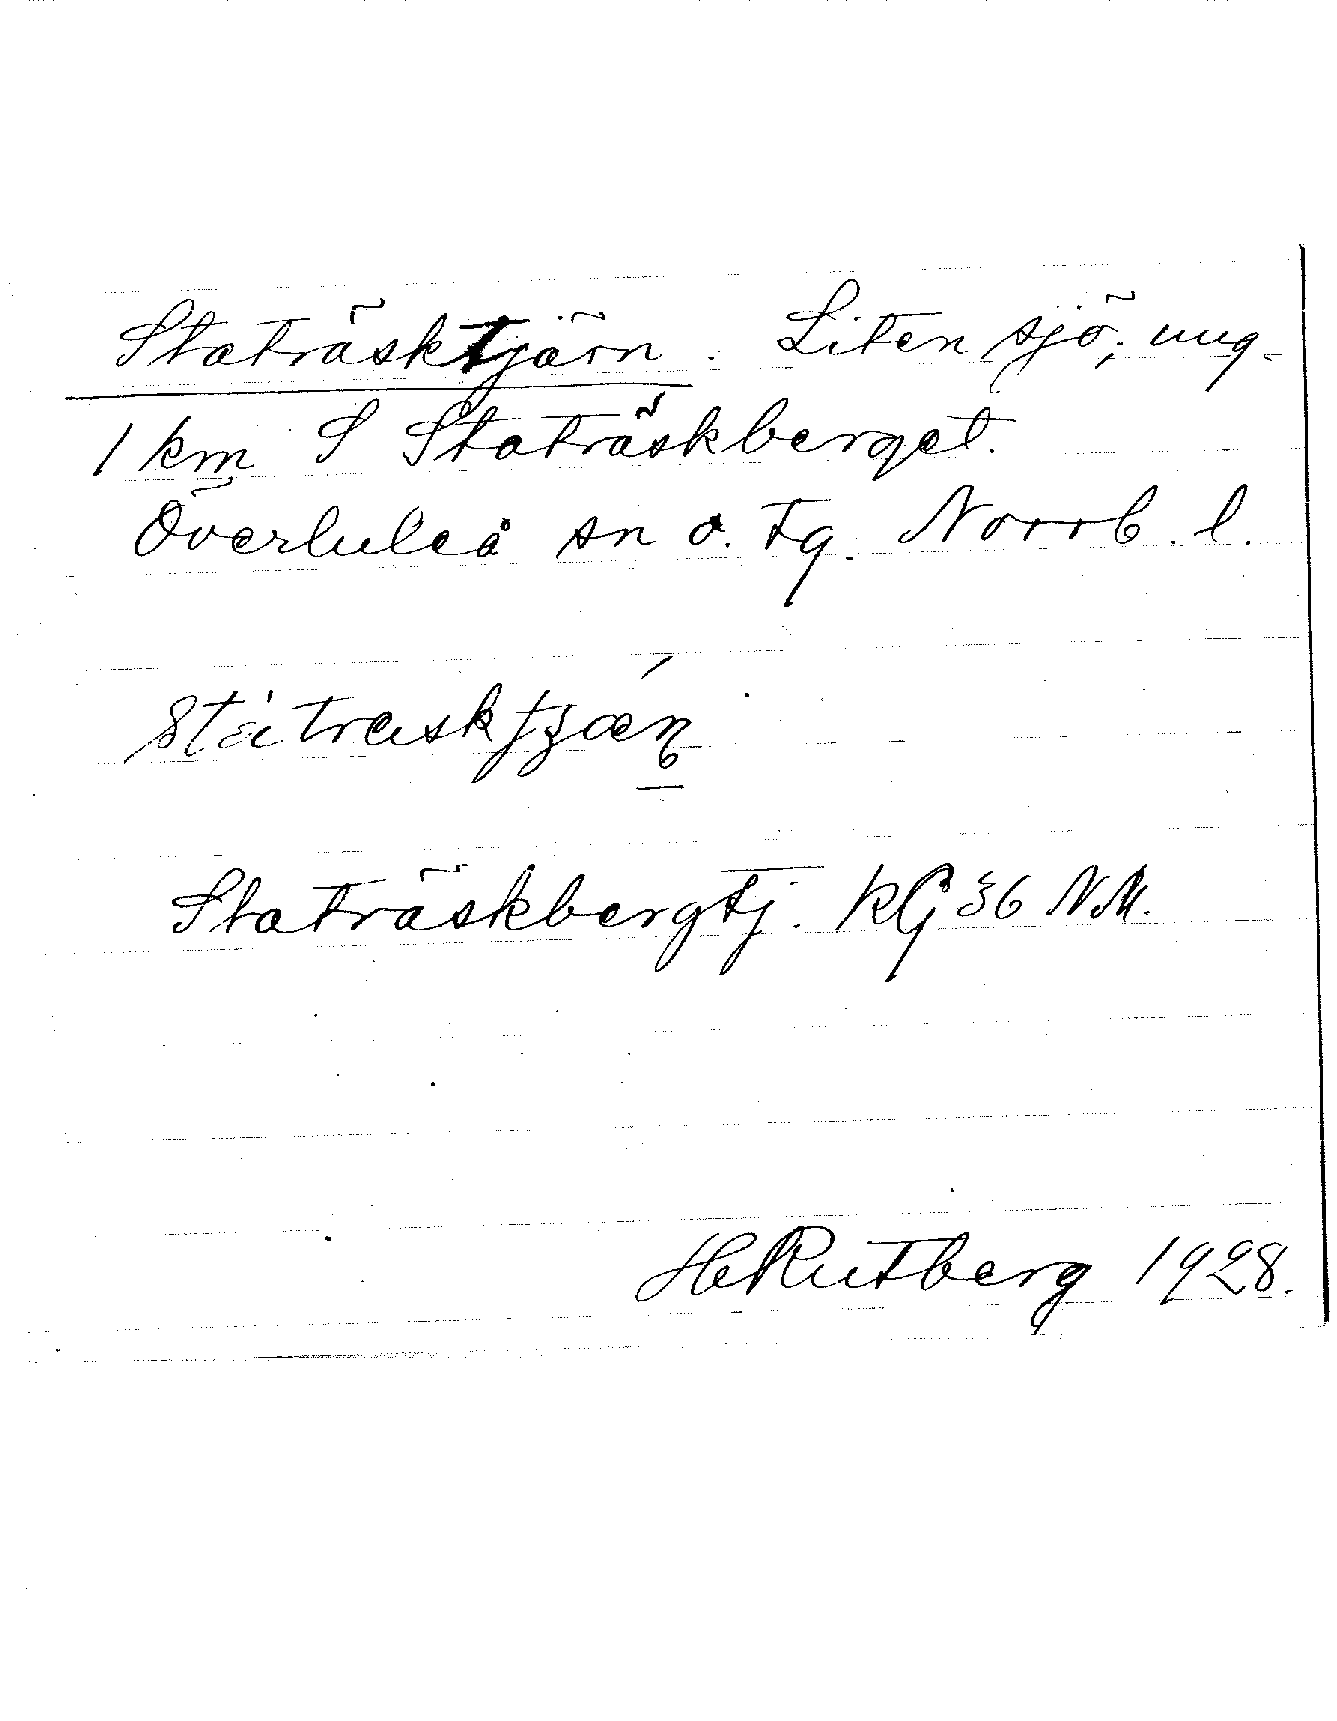 Staträsktjärn. Liten sjö, ung.
1 km S Staträskberget.
Överluleå sn o. tg. Norrb. l.
Staträskbergtj. KG 36 NM.
H Rutberg 1928.